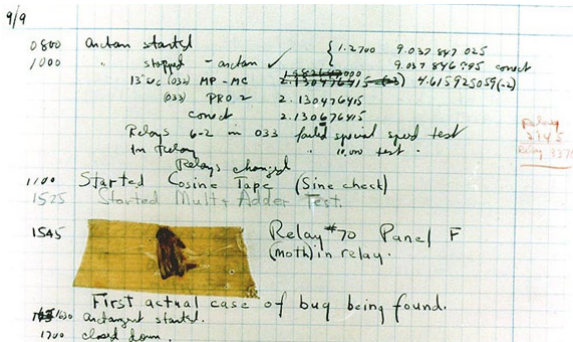 9/9
0800 Antan started
1000 " stopped - antan ✓ { 1.2700 9.037 847 025
9.037 846 995 conect
13"uc (032) MP-MC 2.130476415 (-3) 4.615925059(-2)
(033) PRO 2 2.130476415
conect 2.130676415
Relays 6-2 in 033 failed special speed test
In Relay " 10,000 test.
Relay
Relay 3370
Relays changed
1100 Started Cosine Tape (Sine check)
1525 Started Mult + Adder Test.
1545 Relay #70 Panel F
(moth) in relay.
First actual case of bug being found.
1630 antangent started.
1700 closed down.